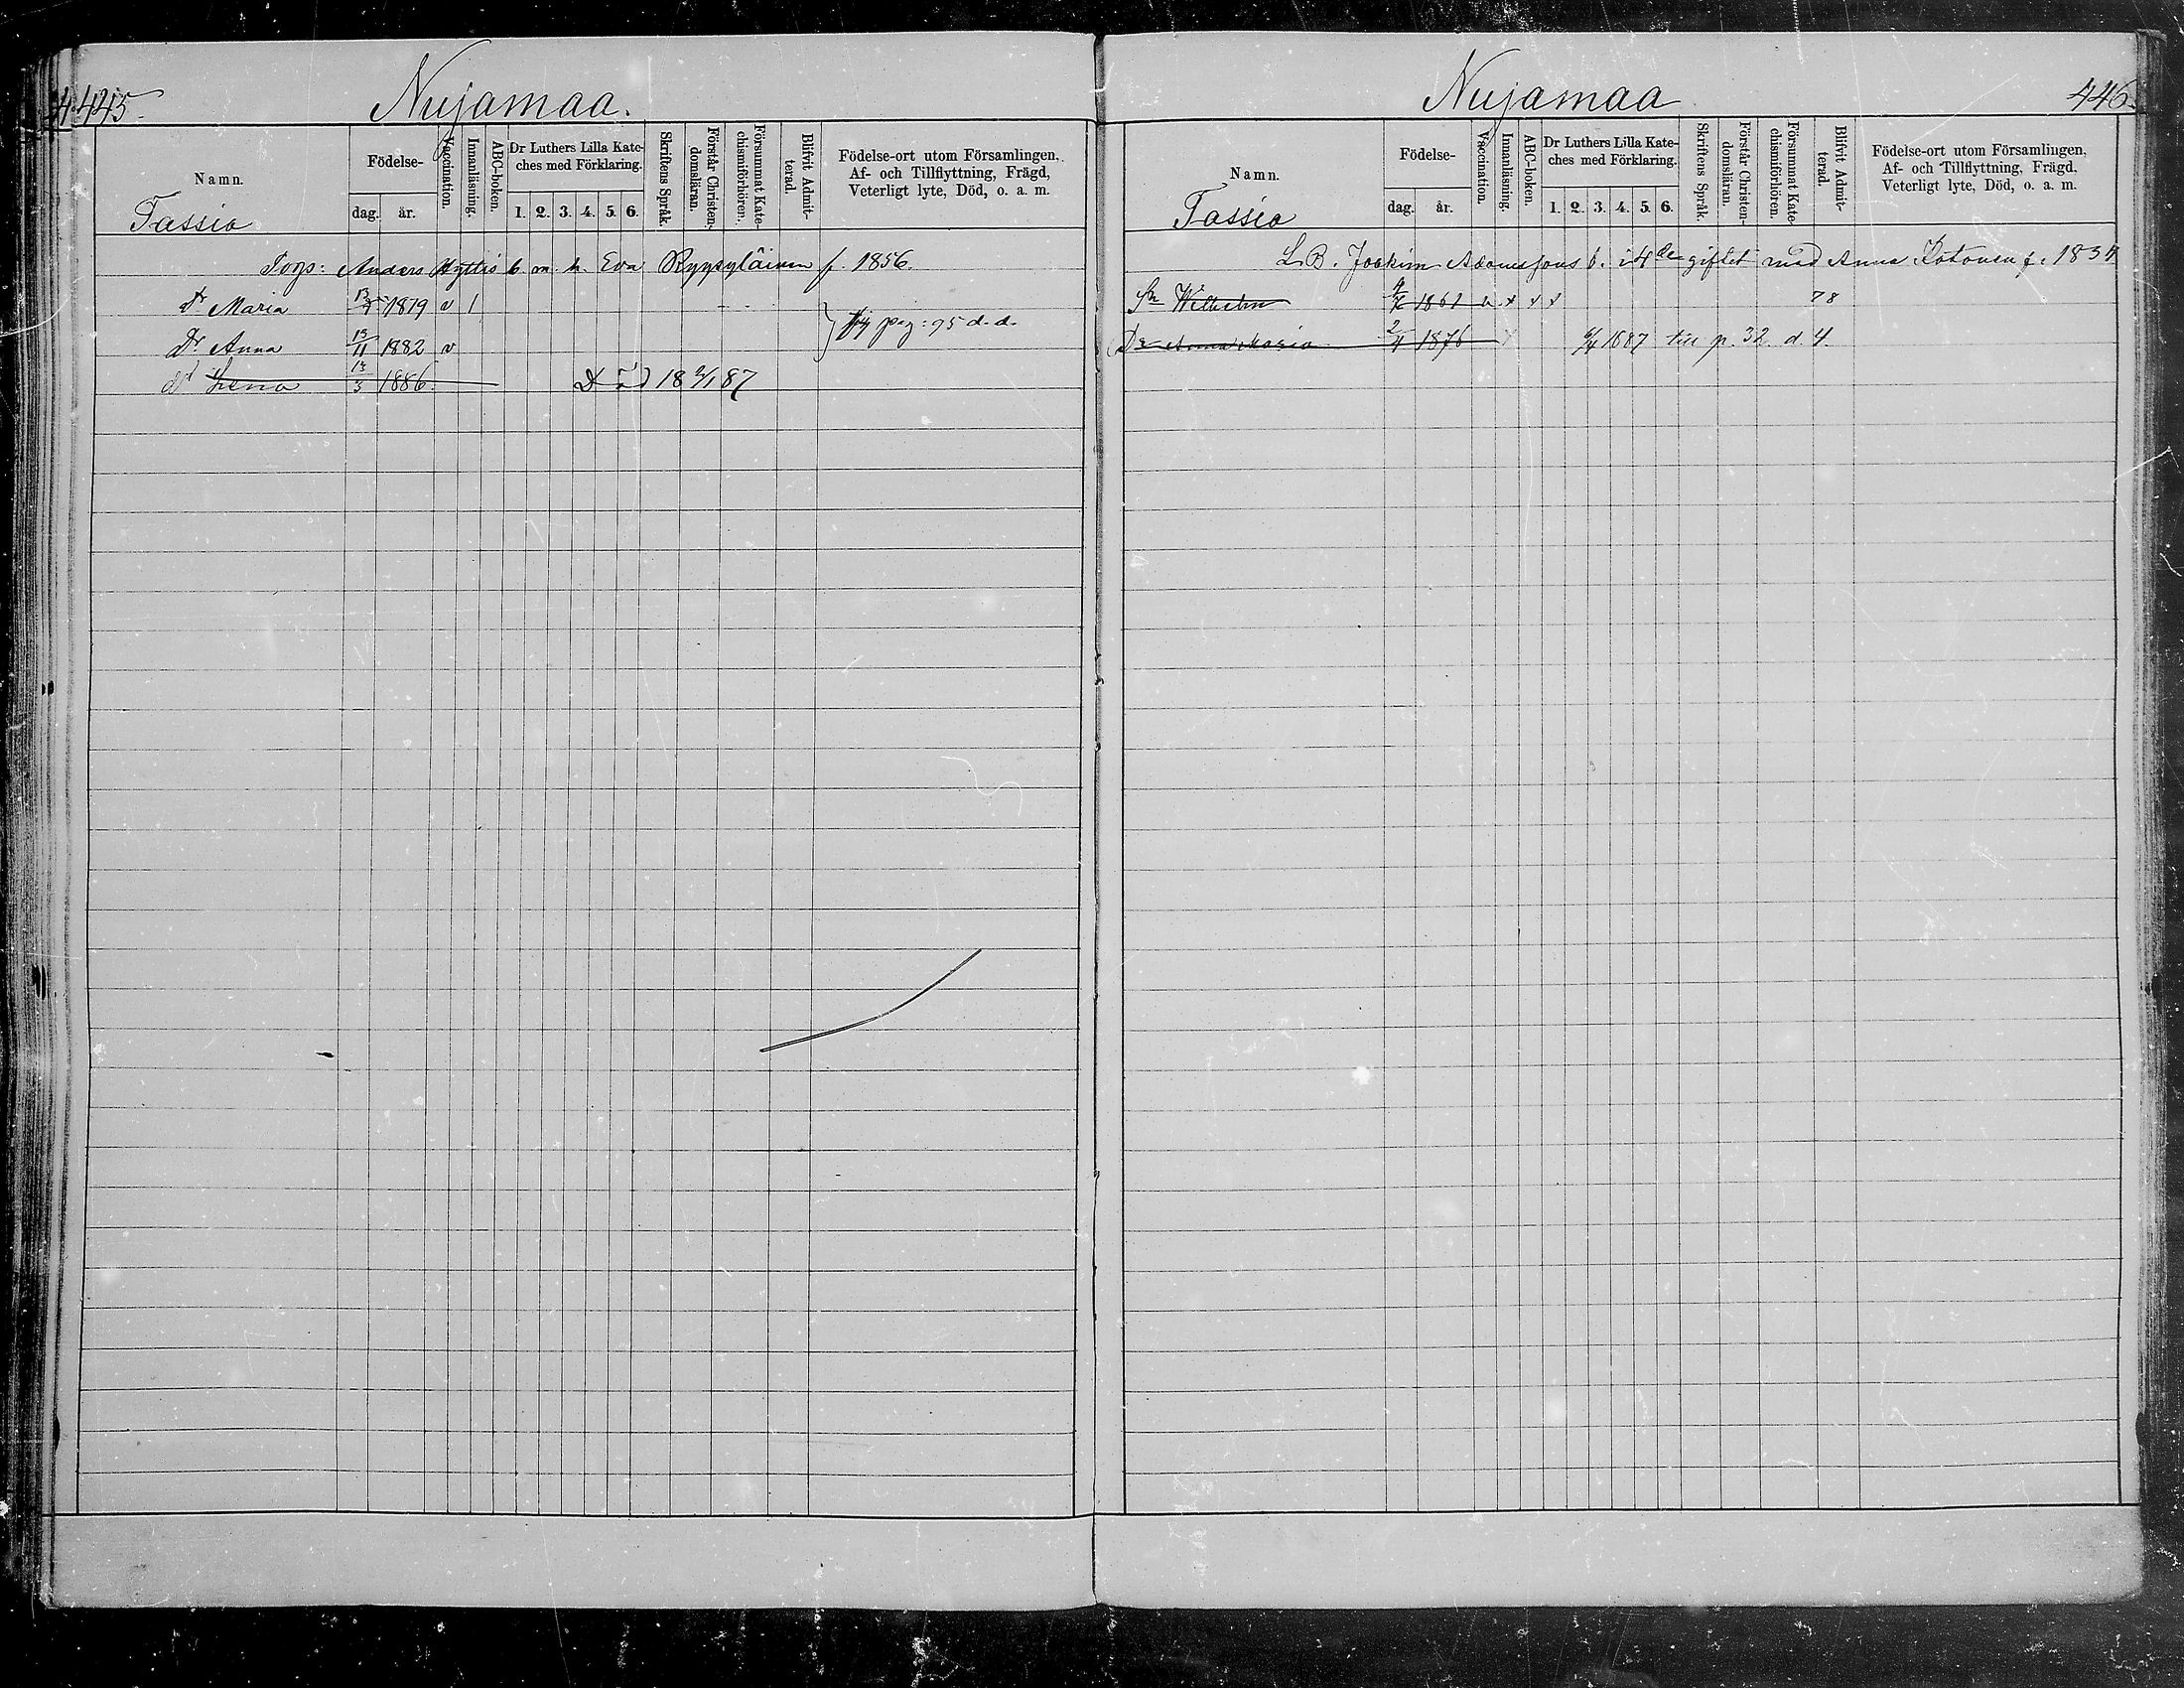 445.
Nujamaa.
Namn.
Födelse-
dag. år.
Vaccination.
Innanläsning.
ABC-boken.
Dr Luthers Lilla Kate-
ches med Förklaring.
1. 2. 3. 4. 5. 6.
Skriftens Språk.
Förstår Christen-
domsläran.
Försummat Kate-
chismiförhören.
Blifvit Admit-
terad.
Födelse-ort utom Församlingen,
Af- och Tillflyttning, Frägd,
Veterligt lyte, Död, o. a. m.
Tassia
Torp: Anders Hyttis b. m. h. Eva Ryypyläinen f. 1856.
Dr Maria 1879 v 1
Dr Anna 15/11 1882 v
pag: 95 d. d.
Dr Lena 13/3 1886. Död 18 2/1 87
Nujamaa
446.
Namn.
Födelse-
dag. år.
Vaccination.
Innanläsning.
ABC-boken.
Dr Luthers Lilla Kate-
ches med Förklaring.
1. 2. 3. 4. 5. 6.
Skriftens Språk.
Förstår Christen-
domsläran.
Försummat Kate-
chismiförhören.
Blifvit Admit-
terad.
Födelse-ort utom Församlingen,
Af- och Tillflyttning, Frägd,
Veterligt lyte, Död, o. a. m.
Tassia
L. B. Joakim Adamssons b. i 4de giftet med Anna Kotonen f. 1834
Sn Wilhelm 1861 v x x x 78
Dr Anna Maria 2/4 1876 6/4 1887 till p. 32 d. 4.